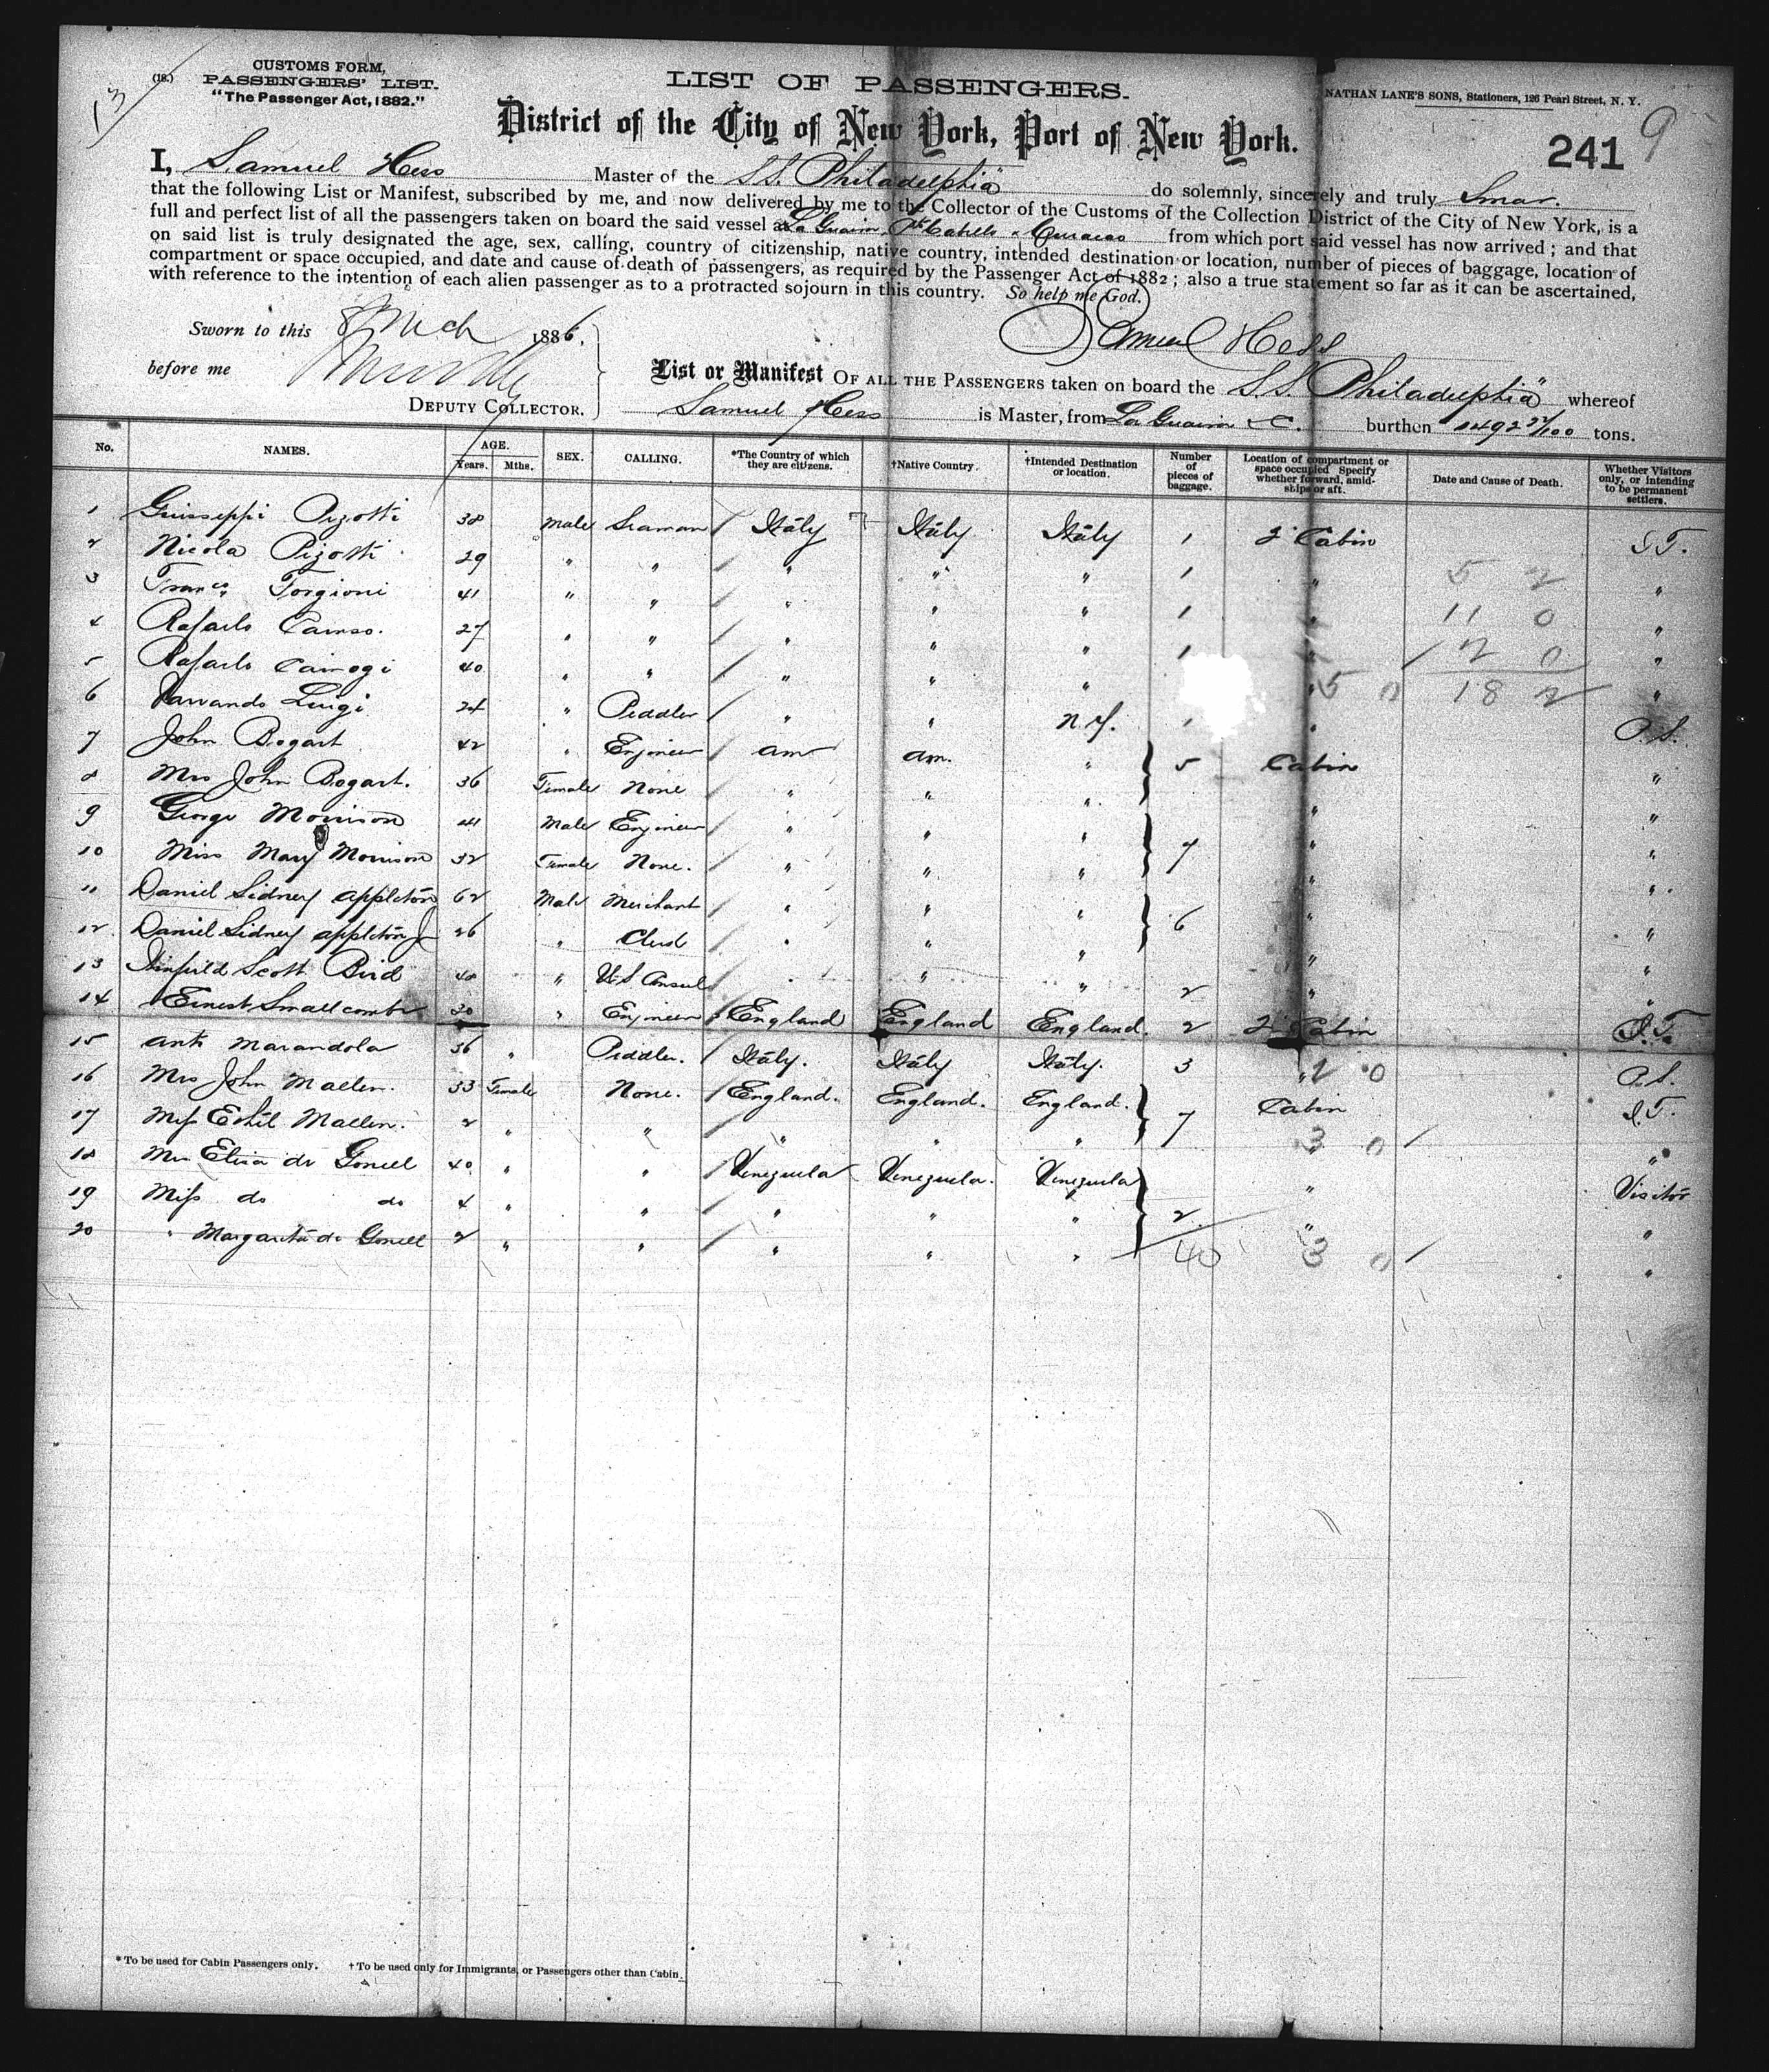 13
(18.)
CUSTOMS FORM,
PASSENGERS' LIST.
"The Passenger Act, 1882."
LIST OF PASSENGERS.
NATHAN LANE'S SONS, Stationers, 126 Pearl Street, N. Y.
District of the City of New York, Port of New York.
241 9
I, Samuel Hess Master of the S.S. "Philadelphia" do solemnly, sincerely and truly Swear.
that the following List or Manifest, subscribed by me, and now delivered by me to the Collector of the Customs of the Collection District of the City of New York, is a
full and perfect list of all the passengers taken on board the said vessel at La Guaira, Pto Cabello & Curacao from which port said vessel has now arrived; and that
on said list is truly designated the age, sex, calling, country of citizenship, native country, intended destination or location, number of pieces of baggage, location of
compartment or space occupied, and date and cause of death of passengers, as required by the Passenger Act of 1882; also a true statement so far as it can be ascertained,
with reference to the intention of each alien passenger as to a protracted sojourn in this country. So help me God.
Sworn to this 8 Mch 1886,
Samuel Hess
before me
DEPUTY COLLECTOR.
List or Manifest OF ALL THE PASSENGERS taken on board the S.S. "Philadelphia" whereof
Samuel Hess is Master, from La Guaira &C. burthen 1492 22/100 tons.
No. NAMES. AGE. Years. Mths. SEX. CALLING. *The Country of which they are citizens. †Native Country. †Intended Destination or location. Number of pieces of baggage. Location of compartment or space occupied Specify whether forward, amidships or aft. Date and Cause of Death. Whether Visitors only, or intending to be permanent settlers.
1 Guisseppi Pizotti 38 Male Seaman Italy Italy Italy 1 2d Cabin I T.
2 Nicola Pizotti 29 " " " " " 1 " 5 2 "
3 Franco Forgioni 41 " " " " " 1 " 11 0 "
4 Rafaelo Caruso. 27 " " " " " 1 " 2 0 "
5 Rafaelo 40 " " " " " " 5 0 18 2 "
6 Luigi 24 " Peddler " " N.Y. 1 " P.S.
7 John Bogart 42 " Engineer Am Am. " 5 Cabin "
8 Mrs John Bogart. 36 Female None " " " " "
9 George Morrison 41 Male Engineer " " " 7 " "
10 Miss Mary Morrison 32 Female None. " " " " "
11 Daniel Sidney Appleton 62 Male Merchant " " " 6 " "
12 Daniel Sidney Appleton Jr 26 " Clerk " " " " "
13 Winfield Scott Bird 48 " U S Consul " " " 2 " "
14 Ernest Smallcombe 30 " Engineer England England England. 2 2d Cabin I.T.
15 Anto Marandola 36 " Peddler. Italy. Italy Italy. 3 " 2 0 P.S.
16 Mrs John Mallen. 33 Female None. England. England. England. 7 Cabin I.T.
17 Miss Ethel Mallen. 2 " " " " " " 3 0 "
18 Mrs Elisa de Gonell 40 " " Venezuela Venezuela. Venezuela 2 " Visitor
19 Miss do do 4 " " " " " " "
20 " Margarita de Gonell 2 " " " " " 40 " 3 0 "
* To be used for Cabin Passengers only. † To be used only for Immigrants, or Passengers other than Cabin.